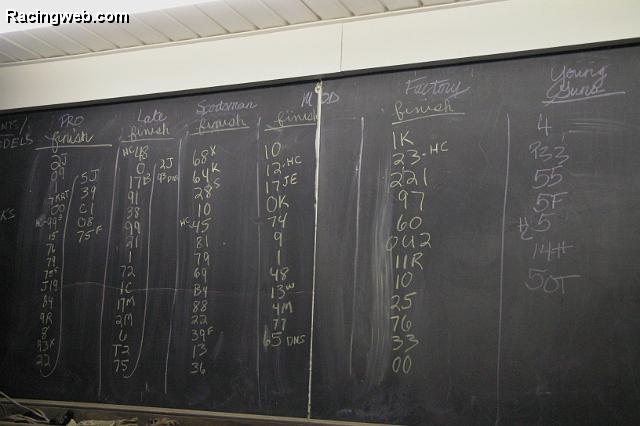 Racingweb.com
PRO
finish
2J
99
7KAT
00
HC-99S
15
76
79
75F
J19
84
9R
8
93K
22
5J
39
C1
08
75-F
Late
finish
HC 48
0
17B
91
38
99
21
1
72
1C
17M
2M
6
T2
75
2J
93 DNS
Sportsman
finish
68X
64K
28S
10
HC-45
81
79
69
B4
88
22
39F
13
36
MOD
finish
10
12-HC
17JE
0K
74
9
1
48
13W
4M
77
65 DNS
Factory
finish
1K
23-HC
221
97
60
0U2
11R
10
25
76
33
00
Young
Guns
4
P33
55
5F
HC 5
14H
50T